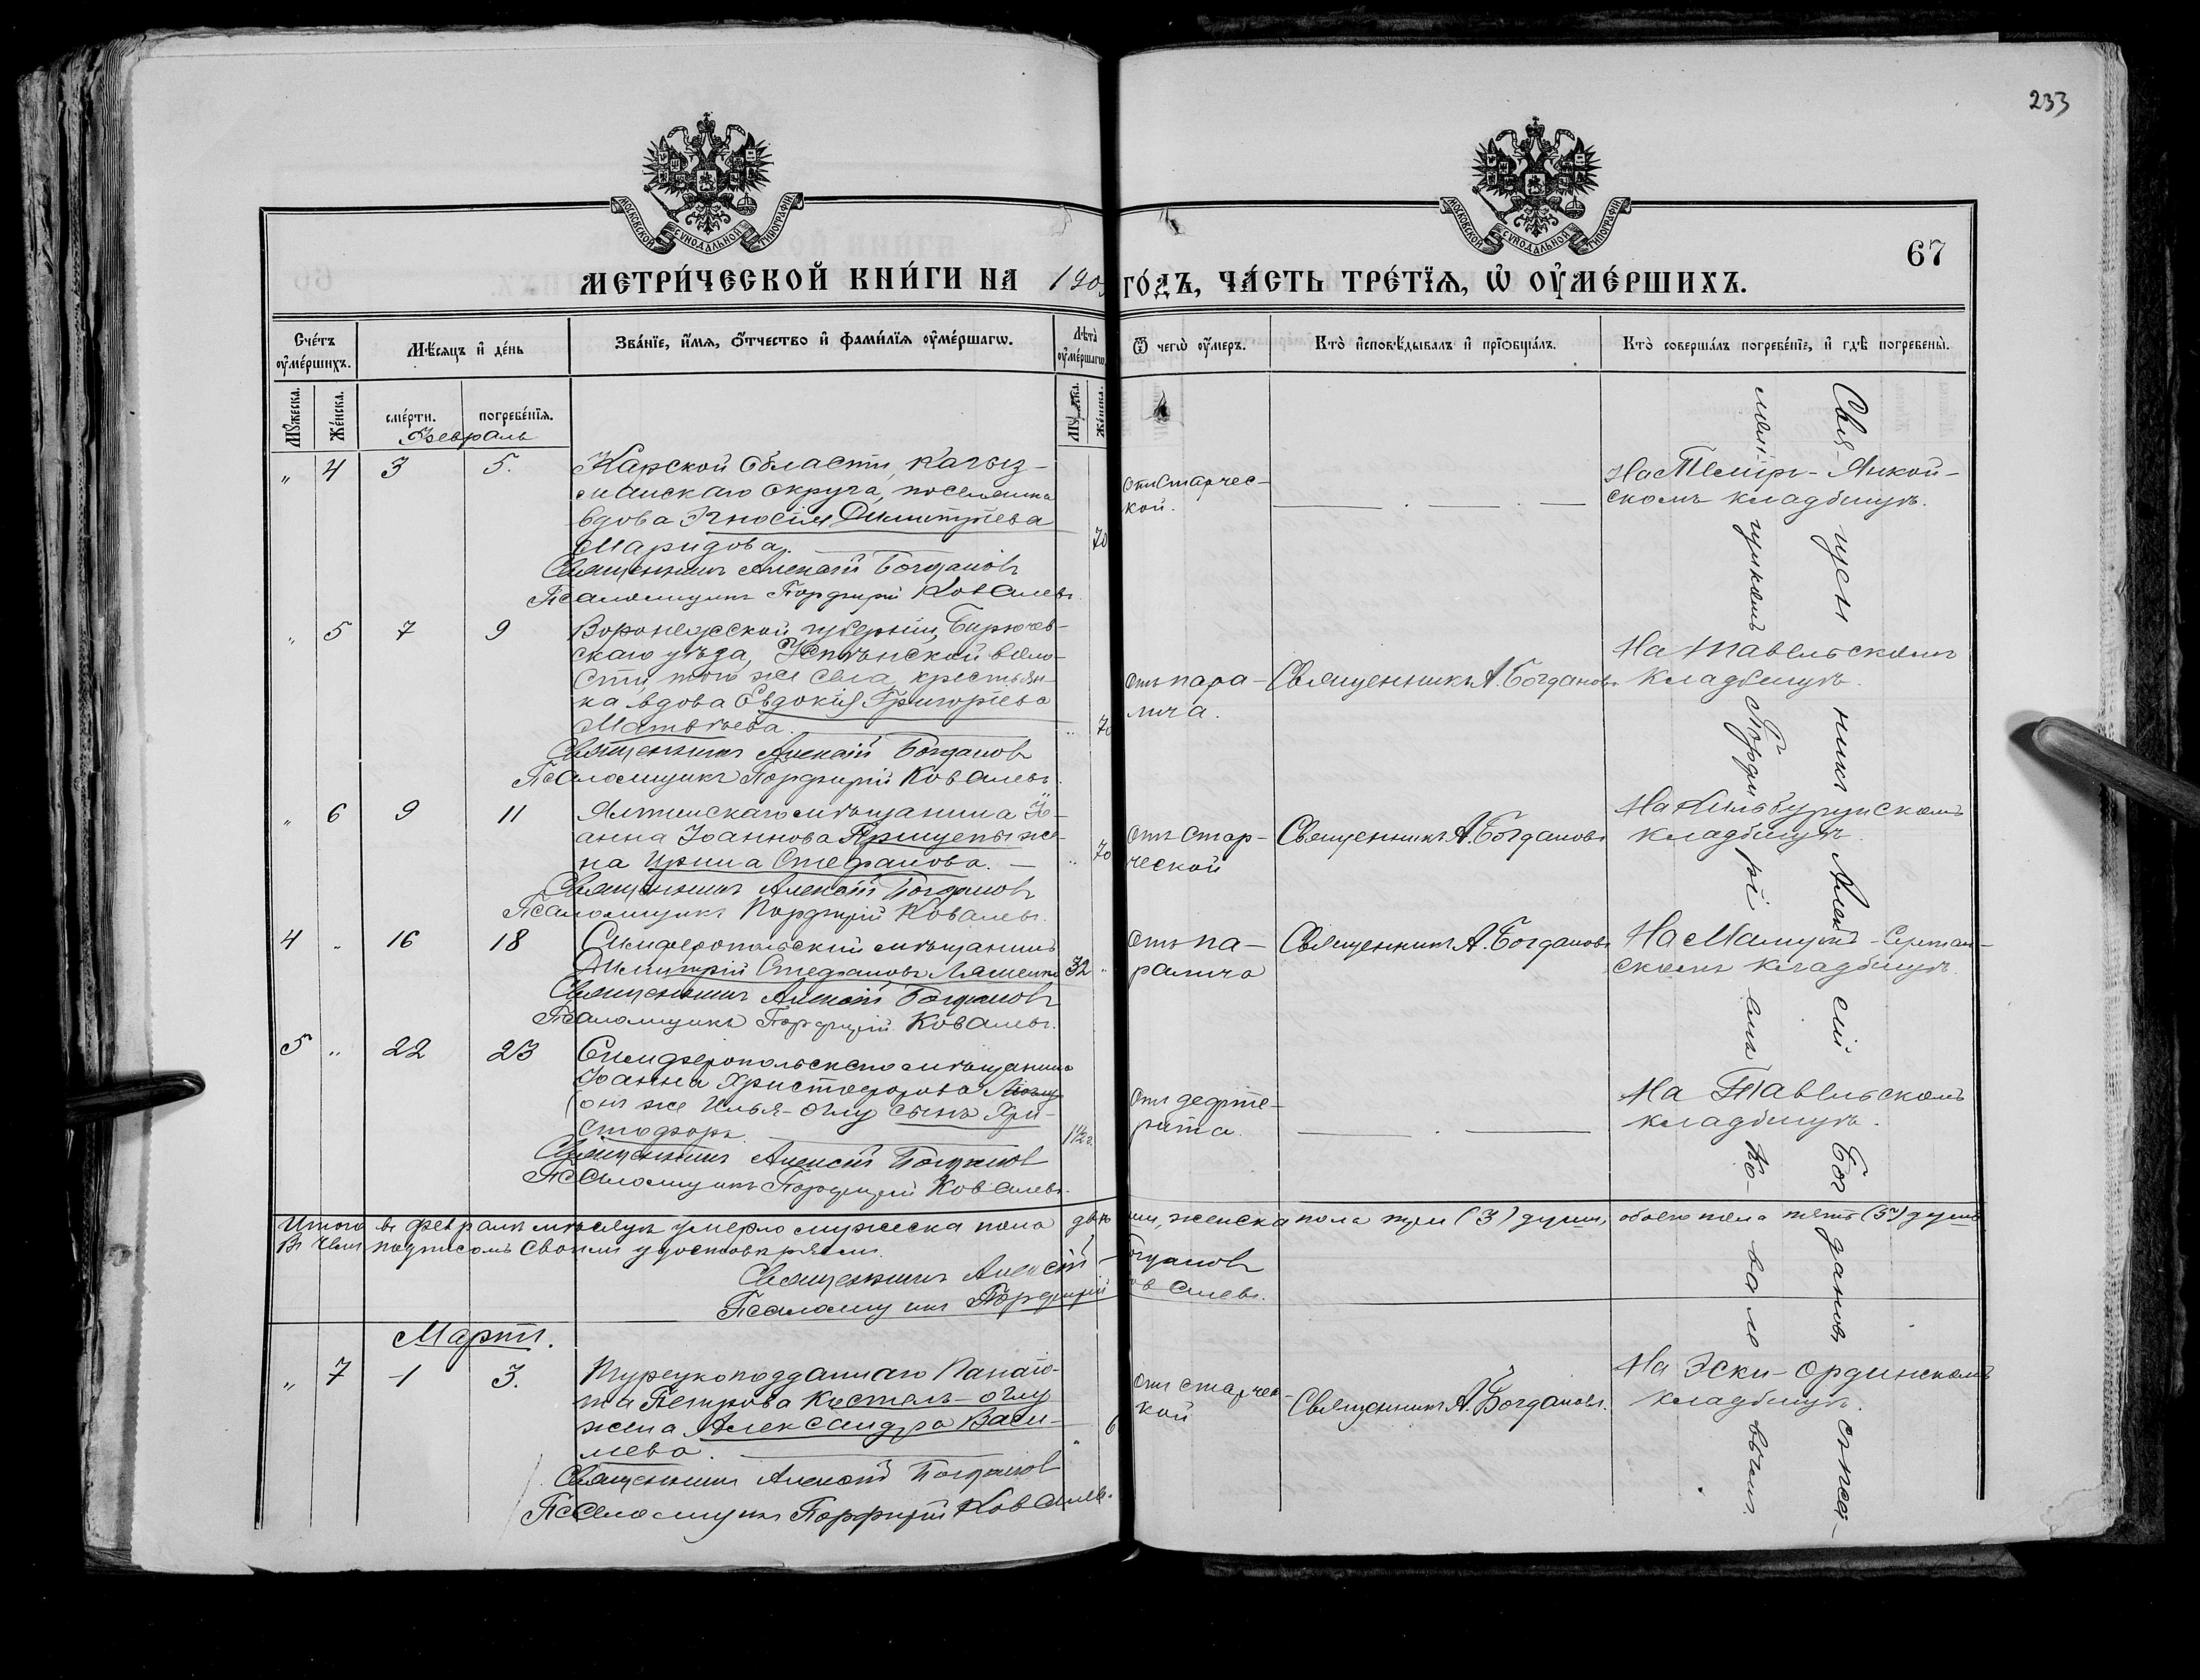 233
МОСКОВСКОЙ СѴНОДАЛЬНОЙ ТИПОГРАФІИ
МОСКОВСКОЙ СѴНОДАЛЬНОЙ ТИПОГРАФІИ
67
МЕТРИ́ЧЕСКОЙ КНИ́ГИ НА 190
ГО́ДЪ, ЧА́СТЬ ТРЕ́ТЇѦ, Ѡ ОУ҆МЕ́РШИХЪ.
Сче́тъ оу҆ме́ршихъ.
Мѣ́сяцъ и҆ де́нь
Зва́нїе, и҆́мѧ, ѻ҆́тчество и҆ фами́лїѧ оу҆ме́ршагѡ.
Лѣ́та оу҆ме́ршагѡ
Ѿ чегѡ̀ оу҆́меръ.
Кто̀ и҆сповѣ́дывалъ и҆ прїѡбща́лъ.
Кто̀ соверша́лъ погребе́нїе, и҆ гдѣ̀ погребены̀.
Му́жеска.
Же́нска.
сме́рти.
погребе́нїѧ.
Же́нска.
Февраль
" 4 3 5.
Карской области, Кагыз-
манскаго округа, поселянка
вдова Димитріева
Маридова.
70
Священникъ Алексій Богдановъ
Псаломщикъ Порфирій Ковалевъ.
отъ старчес-
кой.
На Темиръ-
скомъ кладбищѣ.
" 5 7 9
Воронежской губерніи, Бирючев-
скаго уѣзда, волос-
сти, того же села, крестьян-
ка вдова Евдокія Григоріева
Матвѣева.
" 70
Священникъ Алексій Богдановъ
Псаломщикъ Порфирій Ковалевъ.
отъ пара-
лича.
Священникъ А. Богдановъ.
На Тавельскомъ
кладбищѣ.
" 6 9 11
Ялтинскаго мѣщанина Іо-
анна Іоаннова Прищепы же-
на Ирина Стефанова.
" 70
Священникъ Алексій Богдановъ
Псаломщикъ Порфирій Ковалевъ.
отъ стар-
ческой
Священникъ А. Богдановъ
На Кильбурунскомъ
кладбищѣ.
4 " 16 18
Симферопольскій мѣщанинъ
Димитрій Стефановъ Ляшенко
32 "
Священникъ Алексій Богдановъ
Псаломщикъ Порфирій Ковалевъ.
отъ па-
ралича
Священникъ А. Богдановъ
На Мамутъ-Султан-
скомъ кладбищѣ.
5 " 22 23
Симферопольскаго мѣщанина
Іоанна Христофорова
онъ же Илья-оглу сынъ Хри-
стофоръ.
1½ г.
Священникъ Алексій Богдановъ
Псаломщикъ Порфирій Ковалевъ.
отъ дифте-
рита.
На Тавельскомъ
кладбищѣ.
Итого въ февралѣ мѣсяцѣ умерло мужеска пола двѣ
женска пола три (3) души, обоего пола пять (5) душъ
Въ чемъ подписомъ своимъ удостовѣряемъ.
Священникъ Алексій Богдановъ
Псаломщикъ Порфирій Ковалевъ.
Мартъ.
" 7 1 3.
Турецкоподданнаго Панаіо-
та Петрова Кестель-оглу
жена Александра Васи-
льева.
" 6
Священникъ Алексій Богдановъ
Псаломщикъ Порфирій Ковалевъ.
отъ старчес-
кой
Священникъ А. Богдановъ.
На Эски-Ординскомъ
кладбищѣ.
Священникъ Алексій Богдановъ съ псал-
мщикомъ Порфиріемъ Ковалевымъ.